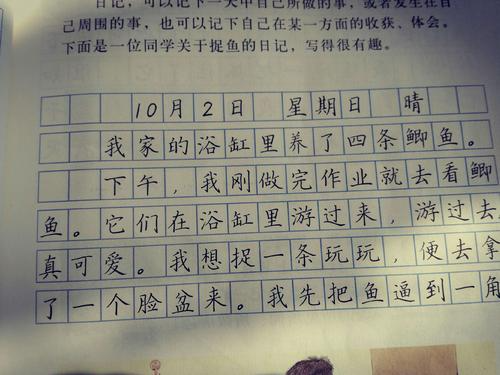 日记，可以记下一天中自己所做的事，或者发生在自
己周围的事，也可以记下自己在某一方面的收获、体会。
下面是一位同学关于捉鱼的日记，写得很有趣。
10月2日 星期日 晴
我家的浴缸里养了四条鲫鱼。
下午，我刚做完作业就去看鲫
鱼。它们在浴缸里游过来，游过去
真可爱。我想捉一条玩玩，便去拿
了一个脸盆来。我先把鱼逼到一角